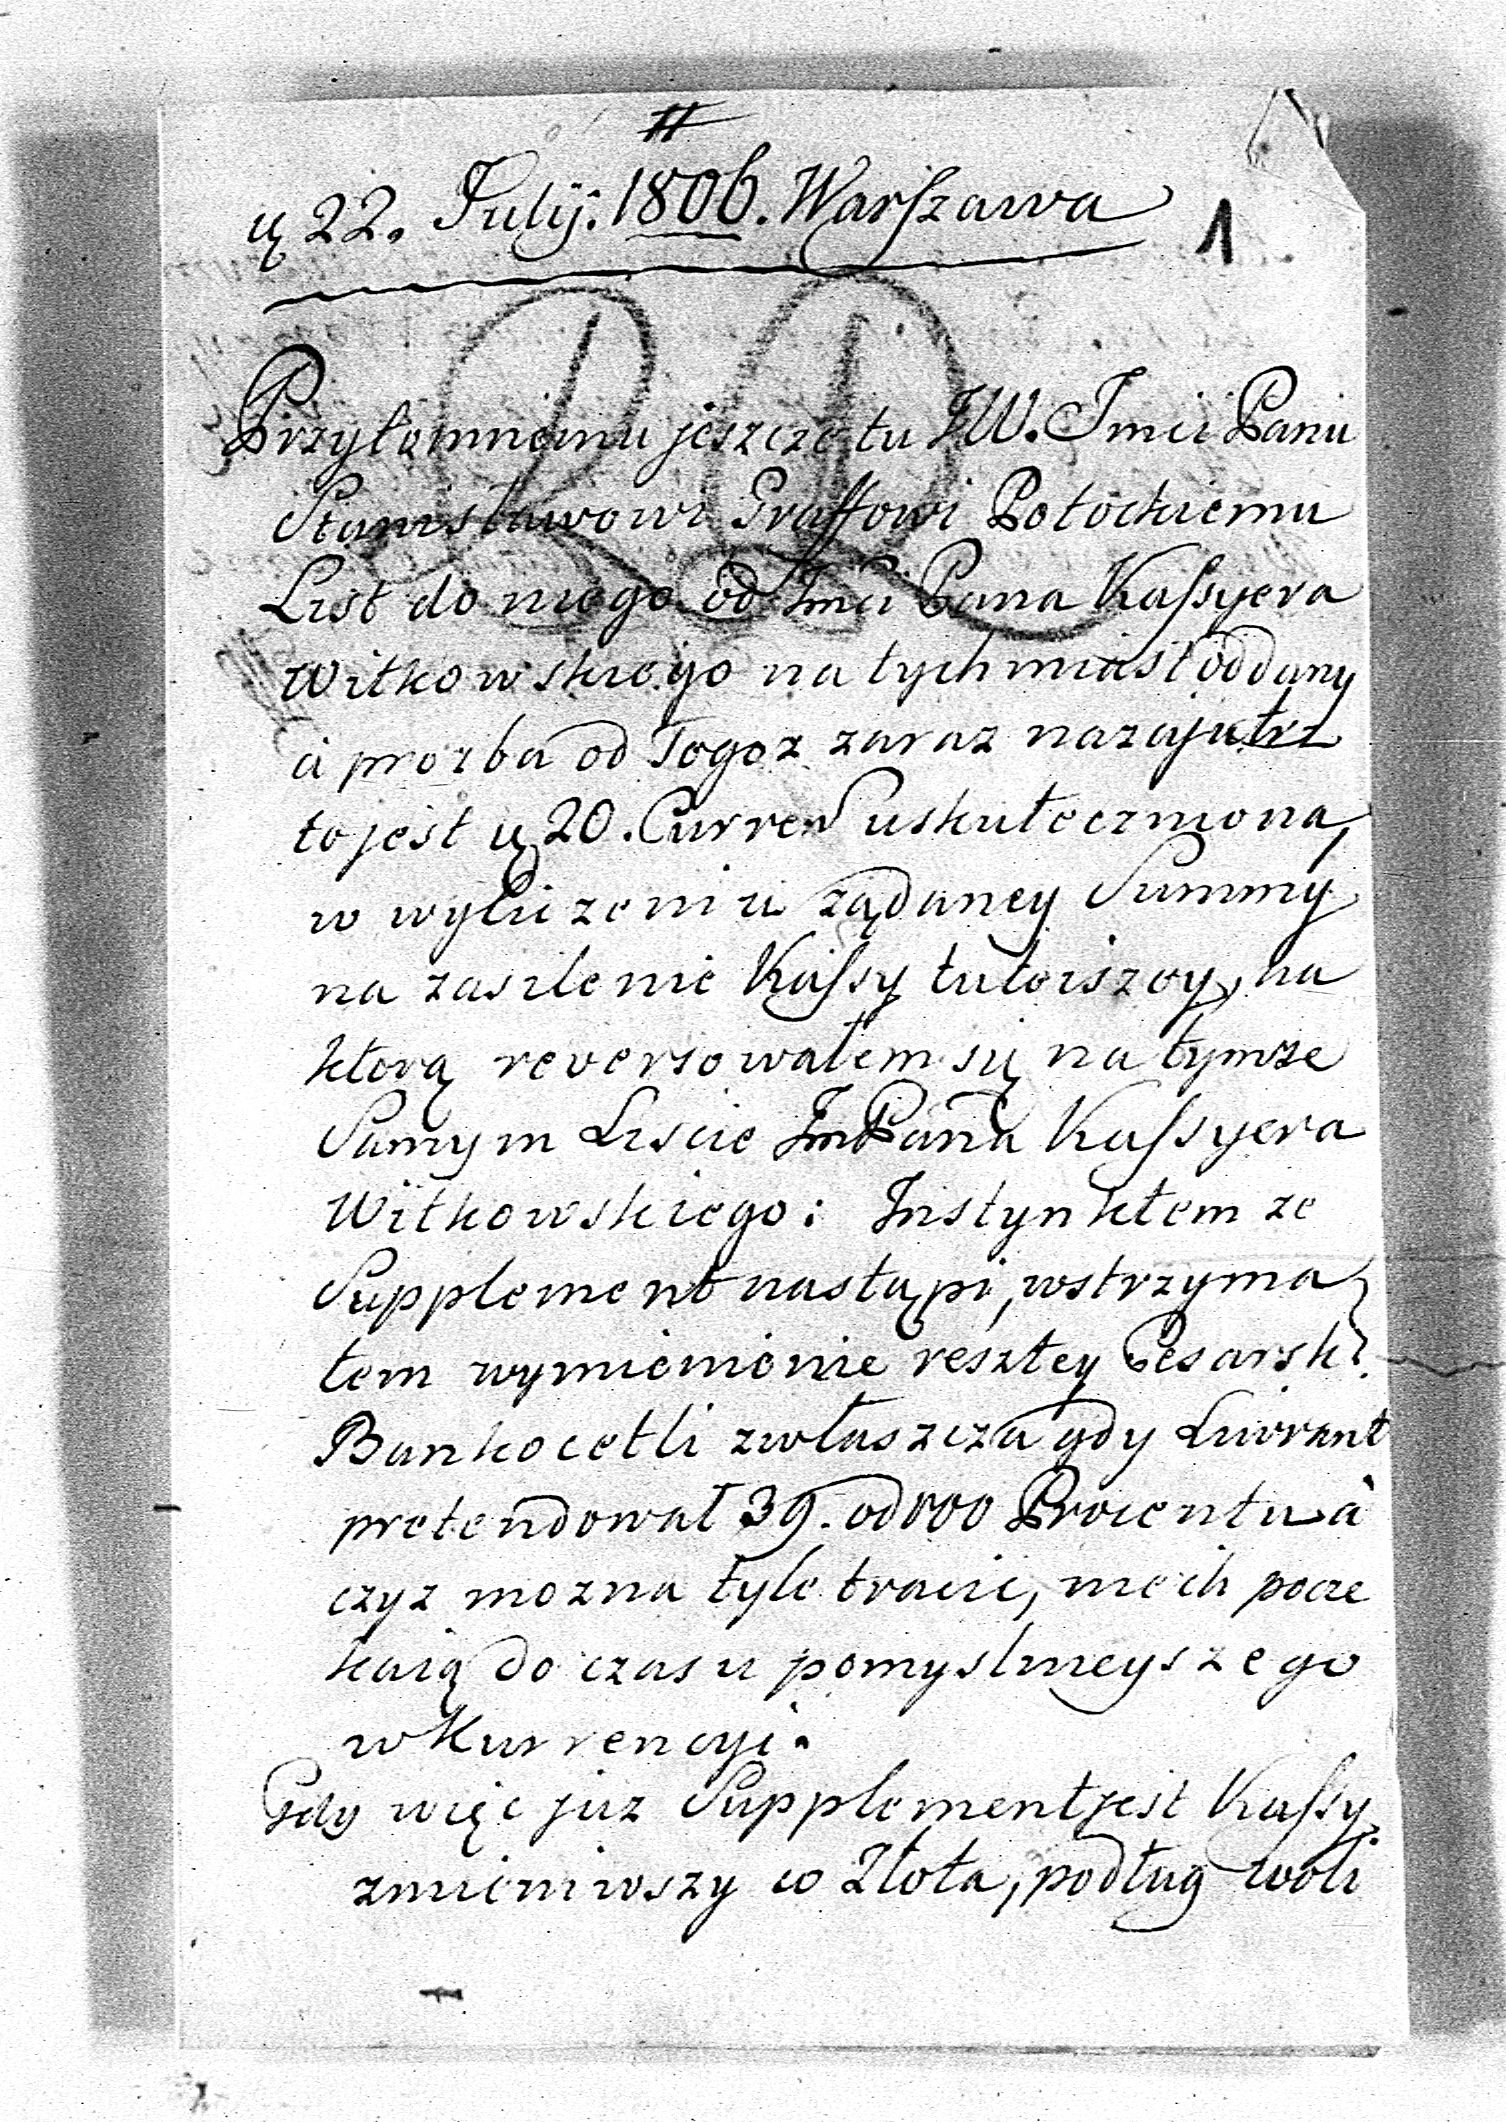 #
ų 22. Julij. 1806. Warszawa
1
Przytomnemu jeszcze tu JW. Jmci Panu
Stanisławowi Graffowi Potockiemu
List do niego od Jmci Pana Kassyera
Witkowskiego natychmiast oddany
a prozba od Tegoz zaraz nazajutrz
to jest ų 20. Curren uskuteczniona,
w wyliczeniu ządaney Summy
na zasilenie Kassy tuteiszey, na
ktorą reversowałem się na tymze
Samym Liscie JmPana Kassyera
Witkowskiego: Instynktem ze
Supplement nastąpi, wstrzyma
łem wymienienie resztey Cesarsk.
Bankocetli zwłaszcza gdy Liwrant
pretendował 39. od 100 Procentu a
czyz mozna tyle tracic, niech pocze
kaią do czasu pomyslnieyszego
w Kurrencyi.
Gdy więc juz Supplement jest Kassy
zmieniwszy co Złota, podług woli